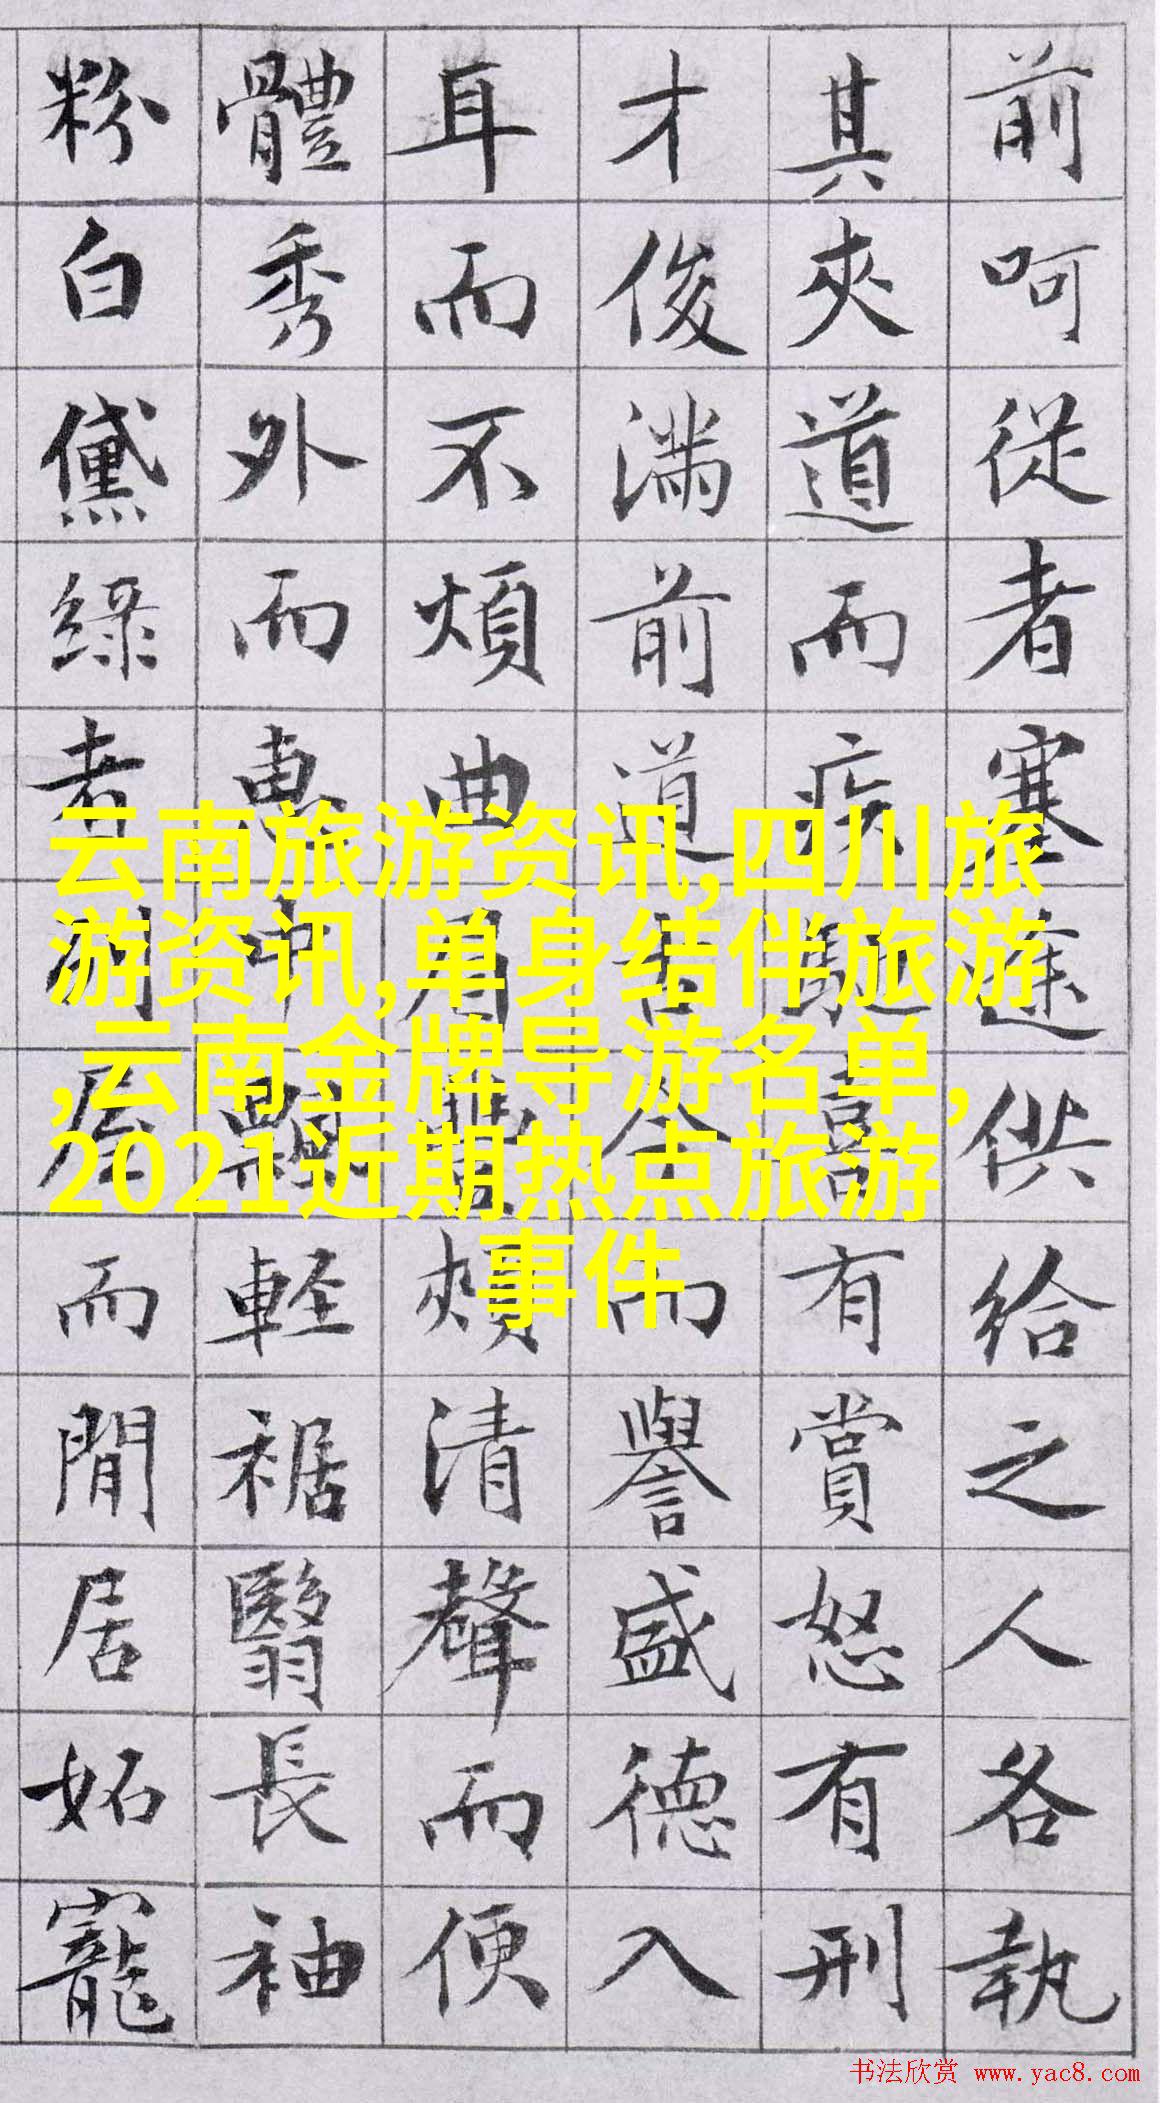 前呵從者塞途供給之人各執
其夾道而疾有賞怒有刑
才俊滿前道古今而譽盛德入
耳而不煩曲眉頰清聲而便
體秀外而惠中輕裾翳長袖
粉白黛綠者列屋而閒居妬寵
云南旅游资讯,四川旅
游资讯,单身结伴旅游
,云南金牌导游名单,
2021近期热点旅游
事件
书法欣赏 www.yac8.com